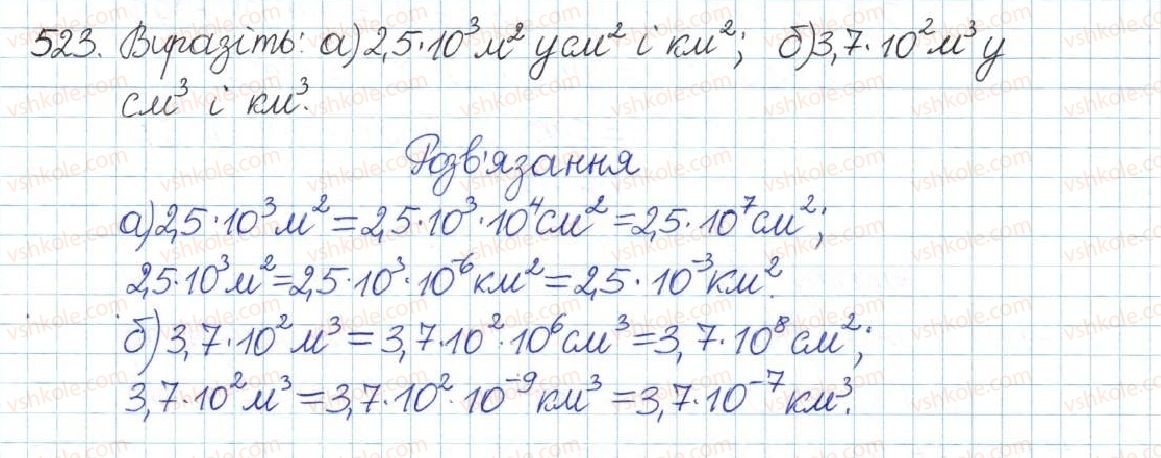 523. Виразіть: а) 2,5·10³ м² у см² і км²; б) 3,7·10² м³ у
см³ і км³.
Розв'язання
а) 2,5·10³ м² = 2,5·10³·10⁴ см² = 2,5·10⁷ см²;
2,5·10³ м² = 2,5·10³·10⁻⁶ км² = 2,5·10⁻³ км².
б) 3,7·10² м³ = 3,7·10²·10⁶ см³ = 3,7·10⁸ см²;
3,7·10² м³ = 3,7·10²·10⁻⁹ км³ = 3,7·10⁻⁷ км³.